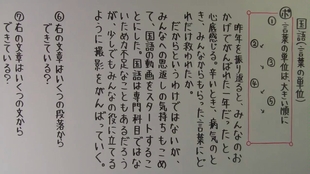 国語(言葉の単位)
☆言葉の単位は、大きい順に
①
②
③
④
⑤
昨年を振り返ると、みんなのお
かげでがんばれた一年だった、と
心底感じる。辛いとき、病気のと
き、みんなからもらった言葉にど
れだけ救われたか。
だからというわけではないが、
みんなへの恩返しの気持ちもこめ
て、国語の動画をスタートするこ
とにした。国語は専門科目ではな
いため力不足なこともあるだろう
が、少しでもみんなの役に立てる
ように撮影をがんばっていく。
⑥右の文章はいくつの段落から
できている?
⑦右の文章はいくつの文から
できている?